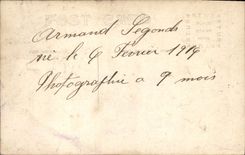 Armand Segonds
né le 6 Fevrier 1919
Photographié a 9 mois